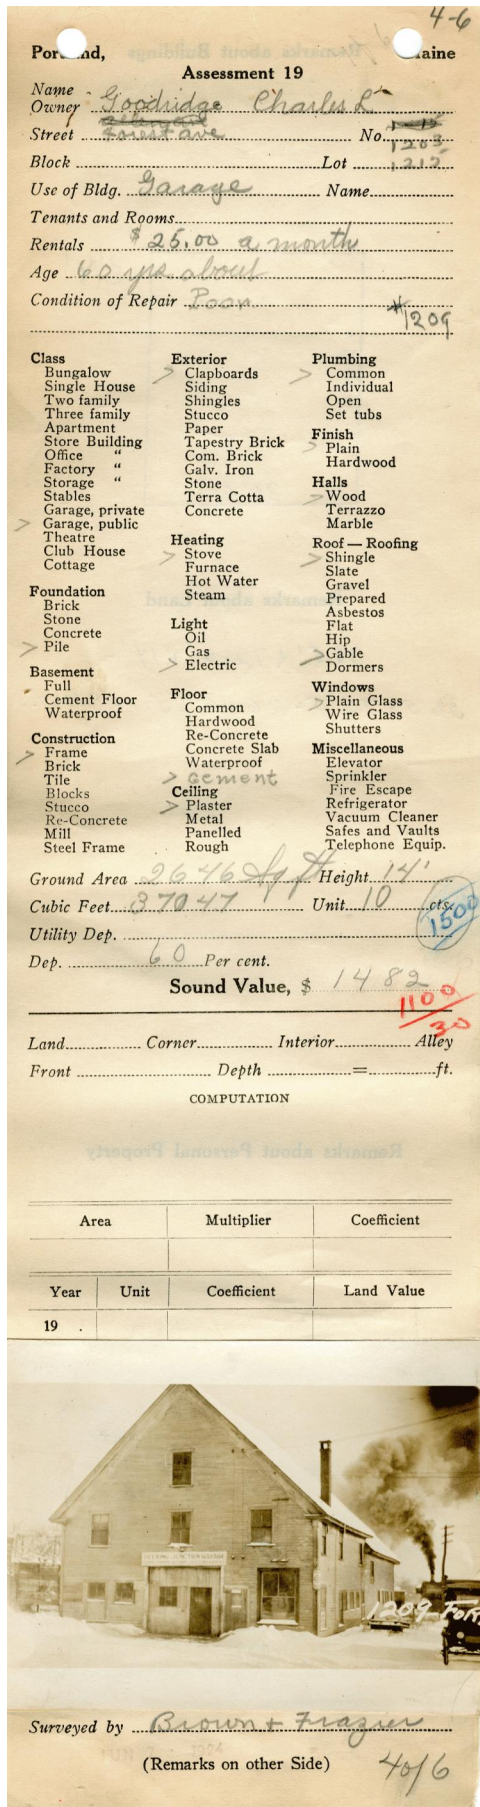 4-6
Portland, Maine
Assessment 19
Name
Owner Goodridge Charles L
Street Forest ave No. 1203
Block Lot 1212
Use of Bldg. Garage Name
Tenants and Rooms
Rentals $25.00 a month
Age 60 yrs about
Condition of Repair Poor
#1209
Class
Bungalow
Single House
Two family
Three family
Apartment
Store Building
Office "
Factory "
Storage "
Stables
Garage, private
> Garage, public
Theatre
Club House
Cottage
Foundation
Brick
Stone
Concrete
> Pile
Basement
Full
Cement Floor
Waterproof
Construction
> Frame
Brick
Tile
Blocks
Stucco
Re-Concrete
Mill
Steel Frame
Exterior
> Clapboards
Siding
Shingles
Stucco
Paper
Tapestry Brick
Com. Brick
Galv. Iron
Stone
Terra Cotta
Concrete
Heating
> Stove
Furnace
Hot Water
Steam
Light
Oil
Gas
> Electric
Floor
Common
Hardwood
Re-Concrete
Concrete Slab
Waterproof
> Cement
Ceiling
> Plaster
Metal
Panelled
Rough
Plumbing
> Common
Individual
Open
Set tubs
Finish
> Plain
Hardwood
Halls
> Wood
Terrazzo
Marble
Roof — Roofing
> Shingle
Slate
Gravel
Prepared
Asbestos
Flat
Hip
> Gable
Dormers
Windows
> Plain Glass
Wire Glass
Shutters
Miscellaneous
Elevator
Sprinkler
Fire Escape
Refrigerator
Vacuum Cleaner
Safes and Vaults
Telephone Equip.
Ground Area 2646 Sq ft Height 14'
Cubic Feet 37047 Unit 10 cts.
1500
Utility Dep.
Dep. 60 Per cent.
Sound Value, $ 1482
1100
30
Land Corner Interior Alley
Front Depth = ft.
COMPUTATION
Area Multiplier Coefficient
Year Unit Coefficient Land Value
19 .
DEERING JUNCTION GARAGE
1209 FOR
Surveyed by Brown & Frazier
(Remarks on other Side)
4 of 6